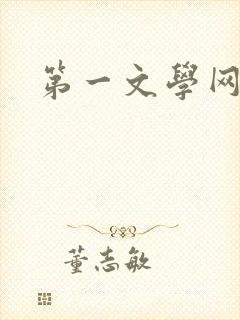 第一文學网
董志敏